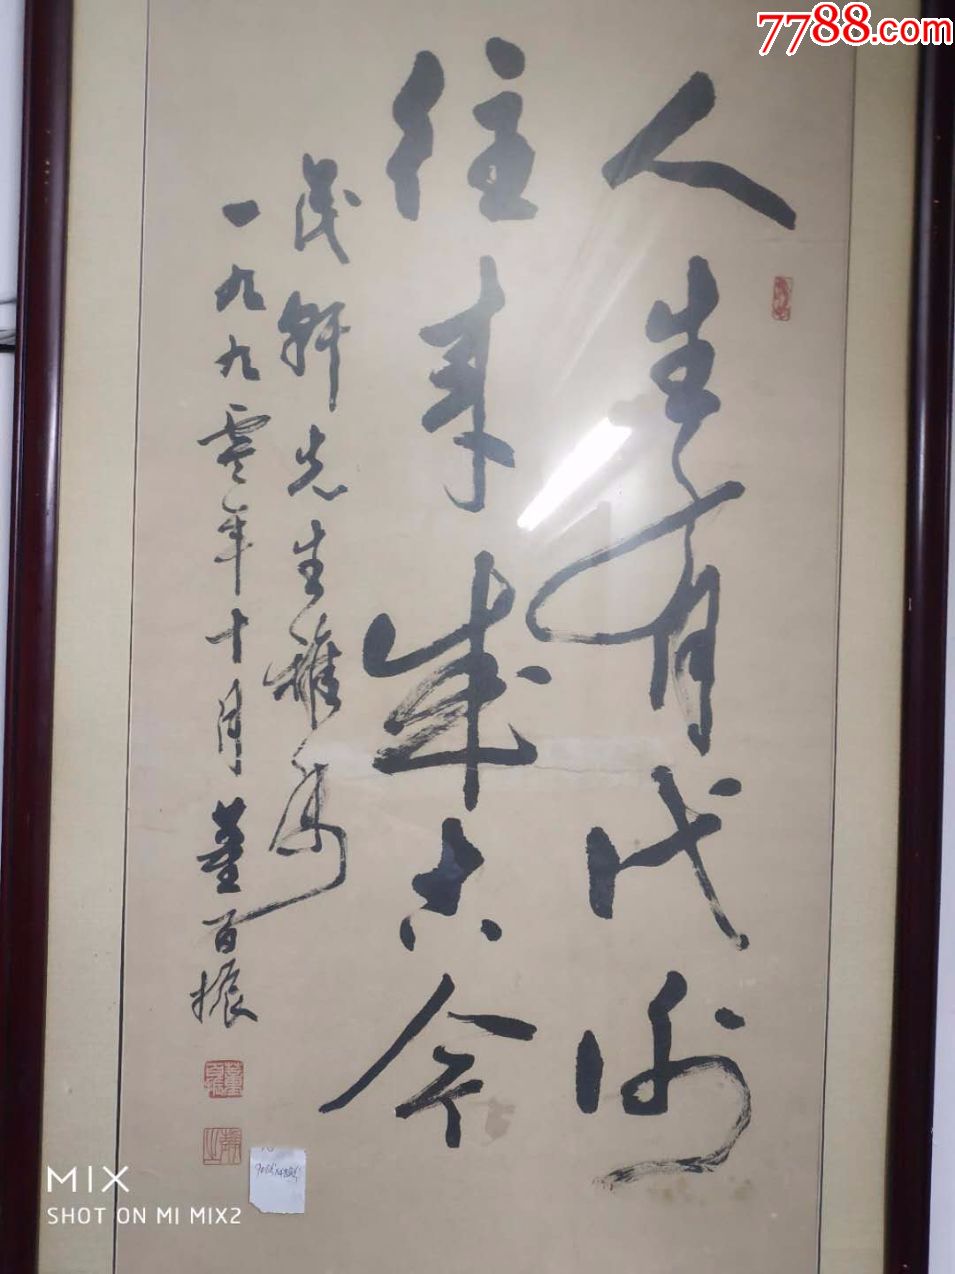 7788.com
人生有代谢
往来成古今
茂軒先生雅属
一九九零年十月 董百振
MIX
SHOT ON MI MIX2